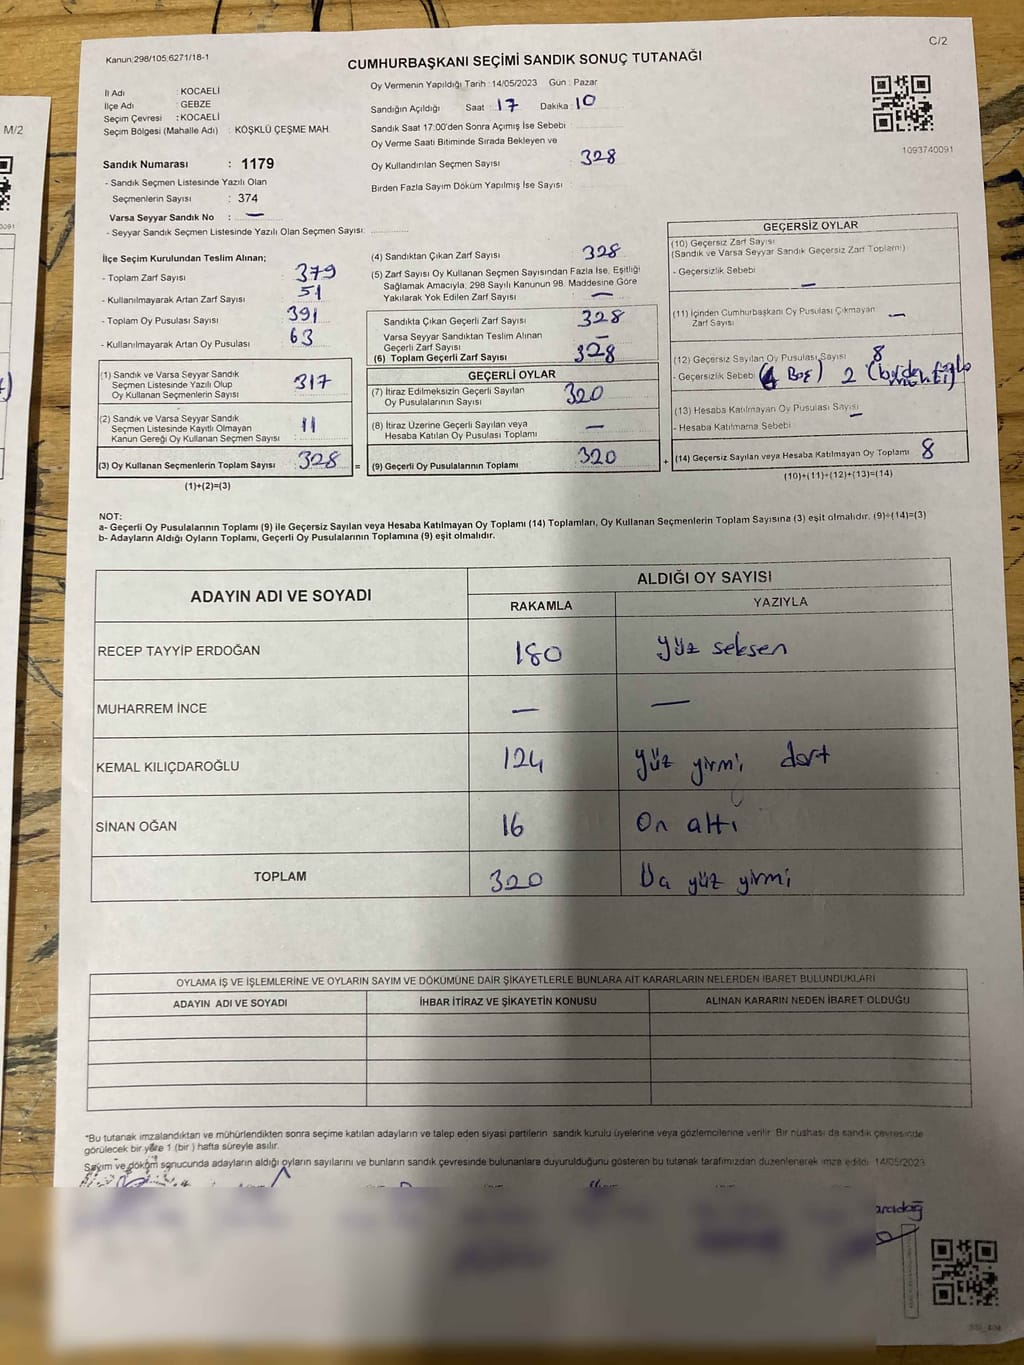 C/2
Kanun:298/105;6271/18-1
CUMHURBAŞKANI SEÇİMİ SANDIK SONUÇ TUTANAĞI
İl Adı : KOCAELİ
İlçe Adı : GEBZE
Seçim Çevresi : KOCAELİ
Seçim Bölgesi (Mahalle Adı) : KÖŞKLÜ ÇEŞME MAH.
Sandık Numarası : 1179
- Sandık Seçmen Listesinde Yazılı Olan
Seçmenlerin Sayısı : 374
Varsa Seyyar Sandık No : —
- Seyyar Sandık Seçmen Listesinde Yazılı Olan Seçmen Sayısı:
Oy Vermenin Yapıldığı Tarih : 14/05/2023 Gün : Pazar
Sandığın Açıldığı Saat : 17 Dakika : 10
Sandık Saat 17:00'den Sonra Açımış İse Sebebi :
Oy Verme Saati Bitiminde Sırada Bekleyen ve
Oy Kullandırılan Seçmen Sayısı : 328
Birden Fazla Sayım Döküm Yapılmış İse Sayısı :
1093740091
M/2
İlçe Seçim Kurulundan Teslim Alınan;
- Toplam Zarf Sayısı : 379
- Kullanılmayarak Artan Zarf Sayısı : 51
- Toplam Oy Pusulası Sayısı : 391
- Kullanılmayarak Artan Oy Pusulası : 63
(1) Sandık ve Varsa Seyyar Sandık
Seçmen Listesinde Yazılı Olup
Oy Kullanan Seçmenlerin Sayısı : 317
(2) Sandık ve Varsa Seyyar Sandık
Seçmen Listesinde Kayıtlı Olmayan
Kanun Gereği Oy Kullanan Seçmen Sayısı : 11
(3) Oy Kullanan Seçmenlerin Toplam Sayısı : 328 =
(1)+(2)=(3)
(4) Sandıktan Çıkan Zarf Sayısı : 328
(5) Zarf Sayısı Oy Kullanan Seçmen Sayısından Fazla İse, Eşitliği
Sağlamak Amacıyla, 298 Sayılı Kanunun 98. Maddesine Göre
Yakılarak Yok Edilen Zarf Sayısı : —
Sandıkta Çıkan Geçerli Zarf Sayısı : 328
Varsa Seyyar Sandıktan Teslim Alınan
Geçerli Zarf Sayısı : —
(6) Toplam Geçerli Zarf Sayısı : 328
GEÇERLİ OYLAR
(7) İtiraz Edilmeksizin Geçerli Sayılan
Oy Pusulalarının Sayısı : 320
(8) İtiraz Üzerine Geçerli Sayılan veya
Hesaba Katılan Oy Pusulası Toplamı : —
(9) Geçerli Oy Pusulalarının Toplamı : 320 +
GEÇERSİZ OYLAR
(10) Geçersiz Zarf Sayısı
(Sandık ve Varsa Seyyar Sandık Geçersiz Zarf Toplamı) :
- Geçersizlik Sebebi : —
(11) İçinden Cumhurbaşkanı Oy Pusulası Çıkmayan
Zarf Sayısı : —
(12) Geçersiz Sayılan Oy Pusulası Sayısı : 8
- Geçersizlik Sebebi : Boş) 2 (birden fazla
(13) Hesaba Katılmayan Oy Pusulası Sayısı : —
- Hesaba Katılmama Sebebi :
(14) Geçersiz Sayılan veya Hesaba Katılmayan Oy Toplamı : 8
(10)+(11)+(12)+(13)=(14)
NOT:
a- Geçerli Oy Pusulalarının Toplamı (9) ile Geçersiz Sayılan veya Hesaba Katılmayan Oy Toplamı (14) Toplamları, Oy Kullanan Seçmenlerin Toplam Sayısına (3) eşit olmalıdır. (9)+(14)=(3)
b- Adayların Aldığı Oyların Toplamı, Geçerli Oy Pusulalarının Toplamına (9) eşit olmalıdır.
ADAYIN ADI VE SOYADI ALDIĞI OY SAYISI
RAKAMLA YAZIYLA
RECEP TAYYİP ERDOĞAN 180 yüz seksen
MUHARREM İNCE — —
KEMAL KILIÇDAROĞLU 124 yüz yirmi dört
SİNAN OĞAN 16 On altı
TOPLAM 320 Üç yüz yirmi
OYLAMA İŞ VE İŞLEMLERİNE VE OYLARIN SAYIM VE DÖKÜMÜNE DAİR ŞİKAYETLERLE BUNLARA AİT KARARLARIN NELERDEN İBARET BULUNDUKLARI
ADAYIN ADI VE SOYADI İHBAR İTİRAZ VE ŞİKAYETİN KONUSU ALINAN KARARIN NEDEN İBARET OLDUĞU
*Bu tutanak imzalandıktan ve mühürlendikten sonra seçime katılan adayların ve talep eden siyasi partilerin sandık kurulu üyelerine veya gözlemcilerine verilir. Bir nüshası da sandık çevresinde
görülecek bir yere 1 (bir ) hafta süreyle asılır.
Sayım ve döküm sonucunda adayların aldığı oyların sayılarını ve bunların sandık çevresinde bulunanlara duyurulduğunu gösteren bu tutanak tarafımızdan düzenlenerek imza edildi. 14/05/2023